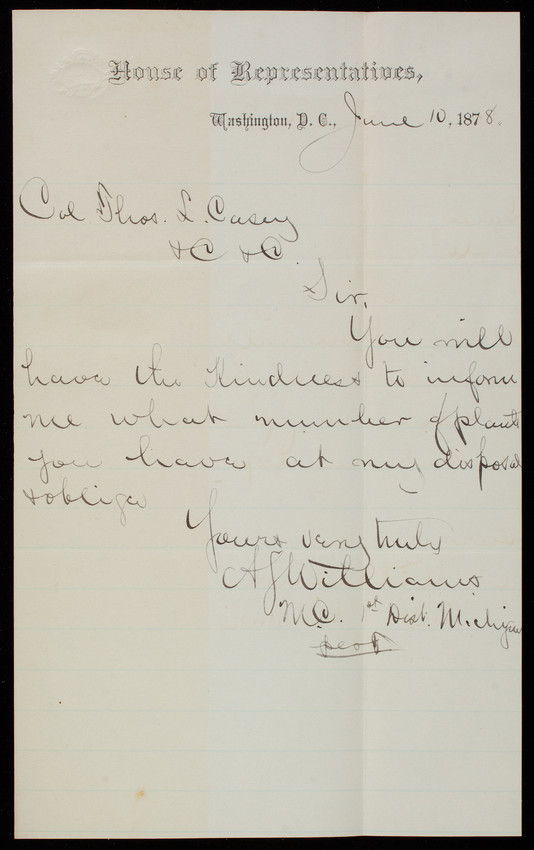 House of Representatives,
Washington, D. C., June 10, 1878.
Col Thos. L. Casey
&C &C.
Sir,
You will
have the Kindness to inform
me what number of plants
you have at my disposal
& oblige
Yours very truly
A S Williams
M.C. 1st Dist. Michigan